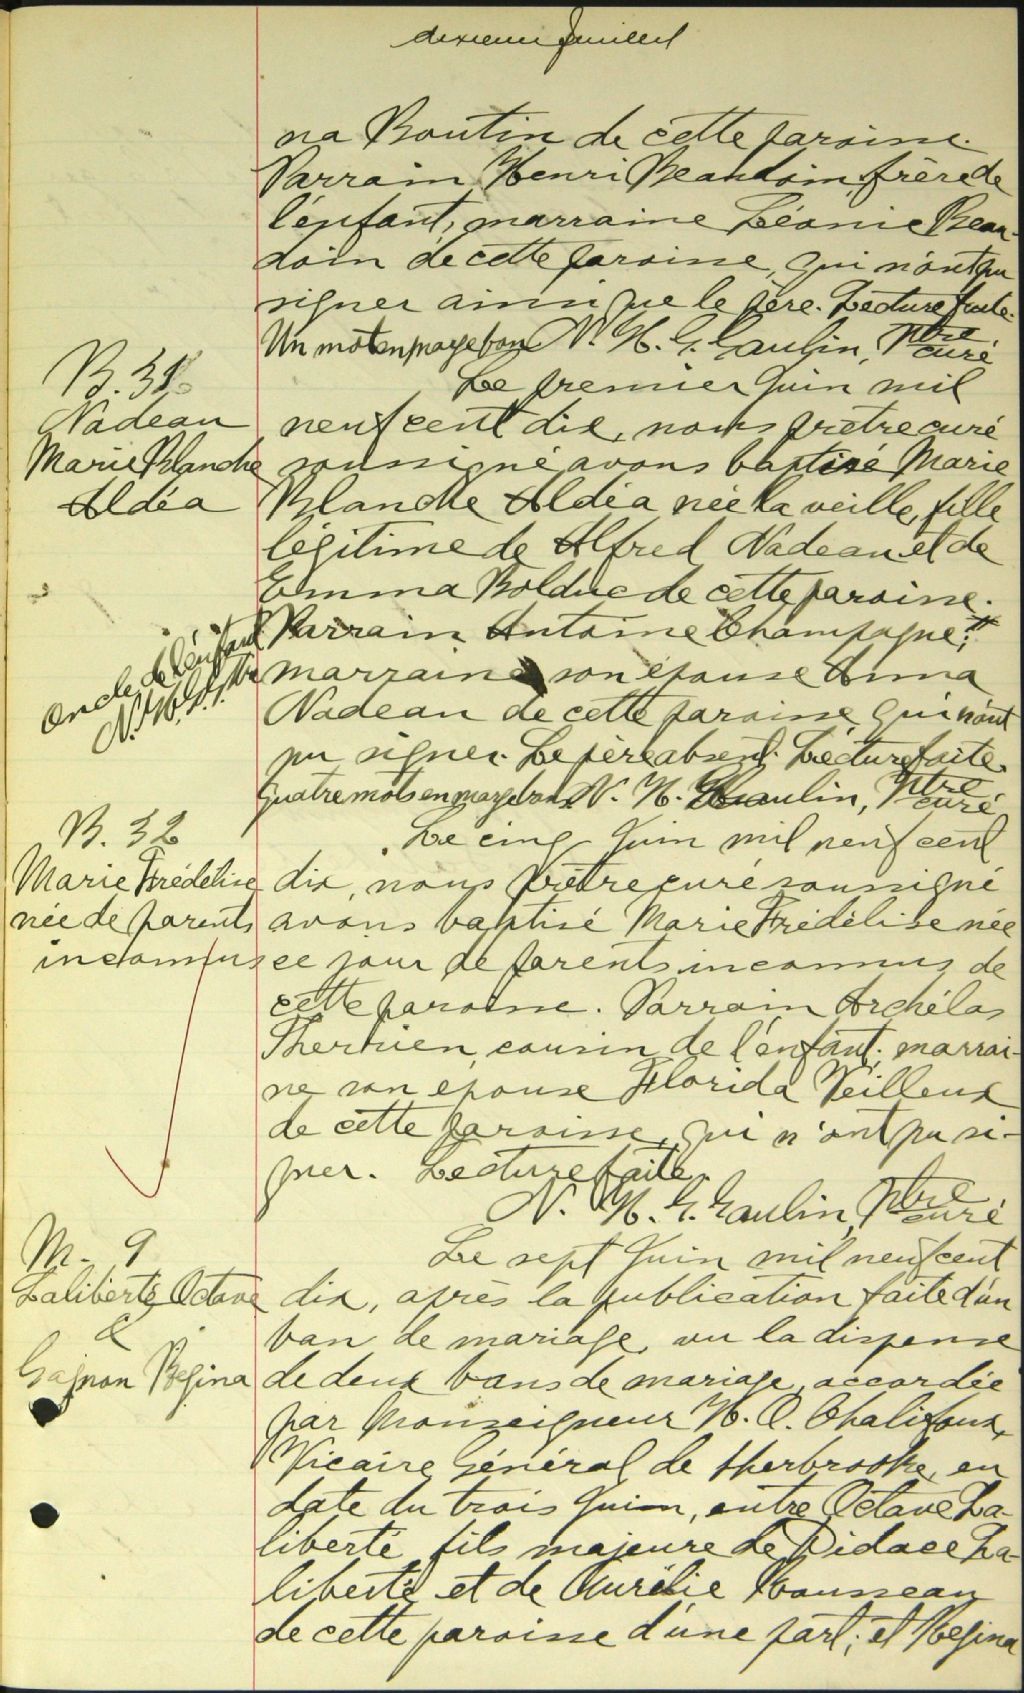 dixième feuillet
na Boutin de cette paroisse.
Parrain, Henri Beaudoin, frère de
l'enfant, marraine Léonie Beau-
doin de cette paroisse, qui n'ont pu
signer ainsi que le père. Lecture faite.
Un mot en marge bon N. H. G. Gaulin, Ptre curé
B. 31
Nadeau
Marie Blanche
Aldéa
Le premier Juin mil
neuf cent dix, nous prêtre curé
soussigné avons baptisé Marie
Blanche Aldéa née la veille, fille
légitime de Alfred Nadeau et de
Emma Bolduc de cette paroisse.
Parrain Antoine Champagne,"
oncle de l'enfant
N. H. G. G. Ptre
marraine son épouse Anna
Nadeau de cette paroisse qui n'ont
pu signer. Le père absent. Lecture faite.
Quatre mots en marge bons N. H. Gaulin, Ptre curé
B. 32
Marie Frédélise
née de parents
inconnus
Le cinq Juin mil neuf cent
dix, nous prêtre curé soussigné
avons baptisé Marie Frédélise née
ce jour de parents inconnus de
cette paroisse. Parrain Archélas
Therrien, cousin de l'enfant; marrai-
ne son épouse Florida Veilleux
de cette paroisse, qui n'ont pu si-
gner. Lecture faite.
N. H. G. Gaulin, Ptre curé
M. 9
Laliberté Octave
&
Gagnon Régina
Le sept Juin mil neuf cent
dix, après la publication faite d'un
ban de mariage, vu la dispense
de deux bans de mariage, accordée
par Monseigneur H. O. Chalifoux,
Vicaire Général de Sherbrooke, en
date du trois Juin, entre Octave La-
liberté, fils majeure de Didace La-
liberté et de Aurélie Rousseau
de cette paroisse d'une part; et Régina